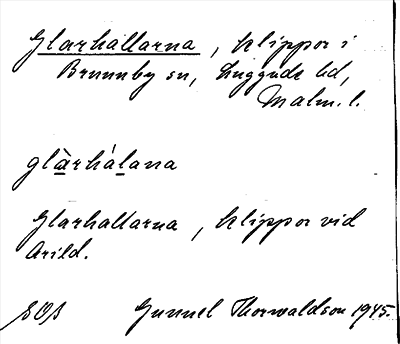 Glarhallarna, klippor i
Brunnby sn, Luggude hd,
Malm. l.
glàrhálana
Glarhallarna, klippor vid
Arild.
SOÄ Gunnel Thorwaldson 1945.